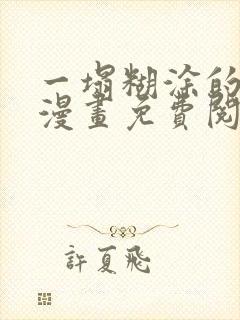 一塌糊涂的
漫畫免費閱
許夏飛